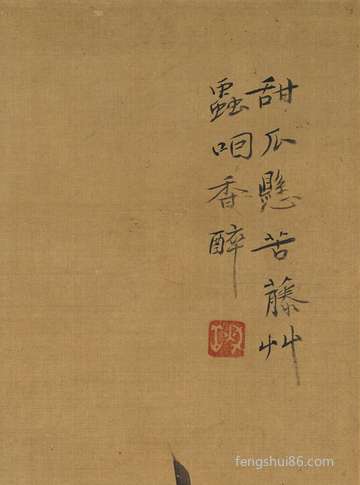 甜瓜懸苦藤艸
蟲咽香醉
fengshui86.com